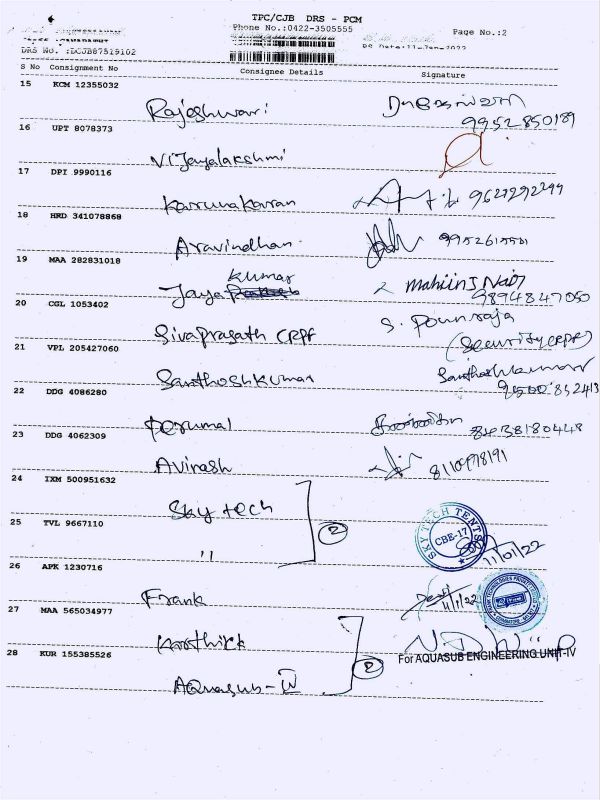 TPC/CJB DRS - PCM
Phone No.:0422-3505555
Page No.:2
DRS No. :DCJB87519102
DS Date:11-Jan-2022
S No Consignment No Consignee Details Signature
15 KCM 12355032
Rajeshwari
9952850189
16 UPT 8078373
Vijayalakshmi
17 DPI 9990116
Karunakaran 9627292299
18 HRD 341078868
Aravindhan
19 MAA 282831018
Jaya Kumar
9894847050
20 CGL 1053402
Sivaprasath CRPF S. Pounraja
(Security CRPF)
21 VPL 205427060
Santhoshkumar Santhoshkumar
22 DDG 4086280
Perumal 8438180448
23 DDG 4062309
Avinash
24 IXM 500951632
Sky tech
2
25 TVL 9667110
"
SKY TECH
CBE-17
11/01/22
26 APK 1230716
Frank
11/1/22
27 MAA 565034977
Karthick
2
28 KUR 155385526
For AQUASUB ENGINEERING UNIT-IV
Aquasub-IV